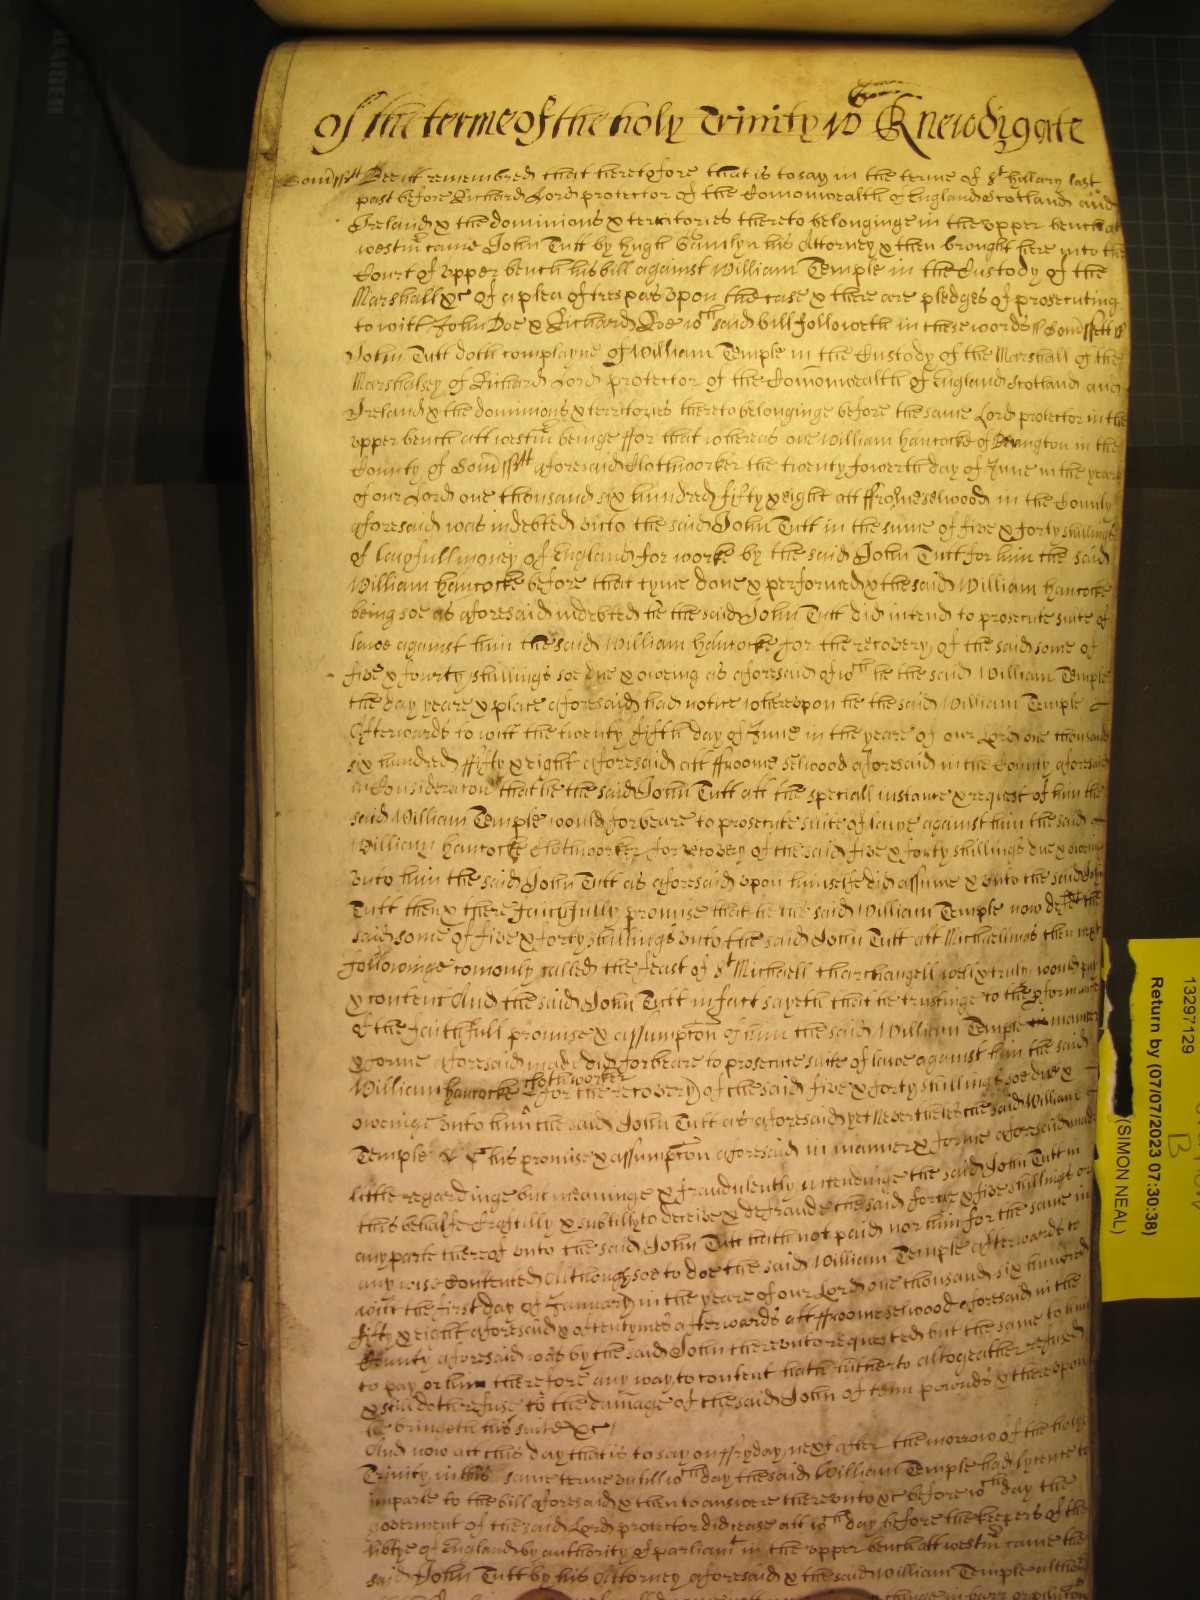 Of the terme of the holy Trinity Ro Newdigate
Somsett Bee it remembred that heretofore that is to say in the terme of St hillary last
past before Richard Lord protector of the Comonwealth of England Scotland and
Ireland & the dominions & territories thereto belonginge in the upper bench at
westmr came John Tutt by hugh his Attorney & then brought here into the
Court of upper bench his bill against William Temple in the Custody of the
Marshall &c of a plea of trespas upon the case & there are pledges of prosecuting
to witt John Doe & Richard Roe wch said bill followeth in these words ss Somssett ss
John Tutt doth complayne of William Temple in the Custody of the Marshall of the
Marshalsey of Richard Lord protector of the Comonwealth of England Scotland and
Ireland & the dominions & territories thereto belonginge before the same Lord protector in the
upper bench att westmr beinge ffor that whereas one William hancocke of in the
County of Somssett aforesaid Clothworker the twenty fowerth day of June in the yeare
of our Lord one thousand six hundred fifty & eight att ffromeselwood in the County
aforesaid was indebted unto the said John Tutt in the sume of five & forty shillings
of lawfull money of England for worke by the said John Tutt for him the said
William hancocke before that tyme done & performed & the said William hancocke
being soe as aforesaid indebted he the said John Tutt did intend to prosecute suite of
lawe against him the said William hancocke for the recovery of the said some of
five & fourty shillings soe due & oweing as aforesaid of wch he the said William Temple
the day yeare & place aforesaid had notice whereupon he the said William Temple
Afterwards to witt the twenty fifth day of June in the yeare of our Lord one thousand
six hundred ffifty & eight aforesaid att ffroome selwood aforesaid in the County aforesaid
in Consideracon that he the said John Tutt att the speciall instance & request of him the
said William Temple would forbeare to prosecute suite of lawe against him the said
William hancocke Clothworker for recovery of the said five & forty shillings due & oweing
unto him the said John Tutt as aforesaid upon himselfe did assume & unto the said John
Tutt then & there faithfully promise that he the said William Temple now the
said some of five & forty shillings unto the said John Tutt att Michaellmas then next
followinge comonly called the feast of St Michaell tharchangell well & truly would pay
& content And the said John Tutt in fact sayeth that he trustinge to the pformance
of the faithfull promise & assumpcon of him the said William Temple in manner
& forme aforesaid made did forbeare to prosecute suite of lawe against him the said
William hancocke clothworker for the recovery of the said five & forty shillings soe due &
oweinge unto him the said John Tutt as aforesaid yet Nevertheles the said William
Temple his promise & assumpcon aforesaid in manner & forme aforesaid made
little regardinge but meaninge & fraudulently intendinge the said John Tutt in
this behalfe Craftilly & sustilly to deceive & defraude the said fortie & five shillings or
any parte thereof unto the said John Tutt hath not paid nor him for the same in
any wise Contented Although soe to doe the said William Temple afterwards to
witt the first day of January in the yeare of our Lord one thousand six hundred
fifty & eight aforesaid & oftentymes afterwards att ffroomeselwood aforesaid in the
County aforesaid was by the said John thereunto requested but the same to him
to pay or him therefore any way to content hath hitherto altogeather refused
& still doth refuse to the damage of the said John of tenn pounds & thereupon
he bringeth his suite &c
And now att this day that is to say on ffryday next after the morrow of the holy
Trinity in this same terme untill wch day the said William Temple had lycence to
imparle to the bill aforesaid & then to answere thereunto &c before wch day the
goverment of the said Lord protector did cease att wch day before the keepers of the
libtye of England by authority of parliamt in the upper bench att westmr came the
said John Tutt by his Attorney aforesaid & the said William Temple although
13297129
Return by (07/07/2023 07:30:38)
(SIMON NEAL)
B